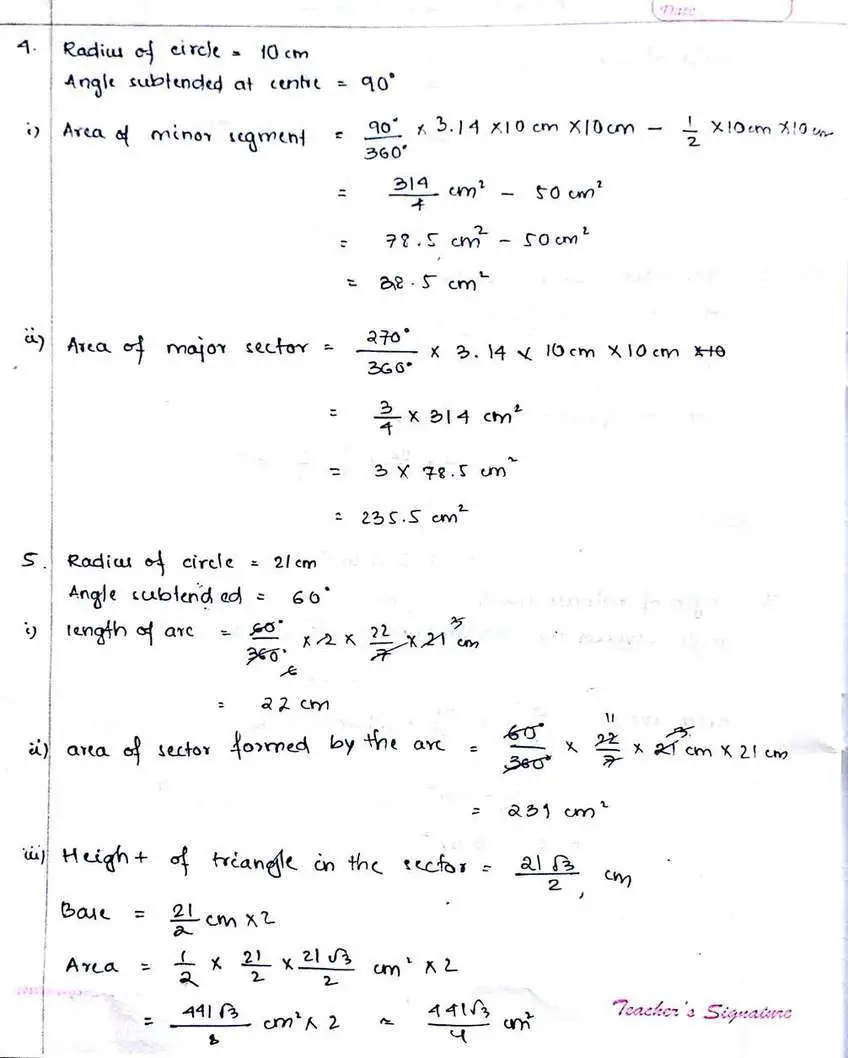 Date
4. Radius of circle = 10 cm
Angle subtended at centre = 90°
i) Area of minor segment = 90°/360° × 3.14 × 10 cm × 10 cm - 1/2 × 10 cm × 10 cm
= 314/4 cm² - 50 cm²
= 78.5 cm² - 50 cm²
= 28.5 cm²
ii) Area of major sector = 270°/360° × 3.14 × 10 cm × 10 cm ×10
= 3/4 × 314 cm²
= 3 × 78.5 cm²
= 235.5 cm²
5. Radius of circle = 21 cm
Angle subtended = 60°
i) length of arc = 60°/360° 6 × 2 × 22/7 × 21 3 cm
= 22 cm
ii) area of sector formed by the arc = 60°/360° × 11 22/7 × 21 3 cm × 21 cm
= 231 cm²
iii) Height of triangle in the sector = 21√3/2, cm
Base = 21/2 cm × 2
Area = 1/2 × 21/2 × 21√3/2 cm² × 2
= 441√3/8 cm² × 2 = 441√3/4 cm²
Teacher's Signature